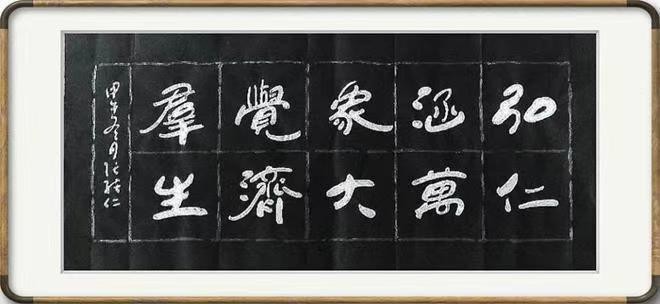 弘仁
涵萬
象大
覺濟
羣生
甲午冬月仁